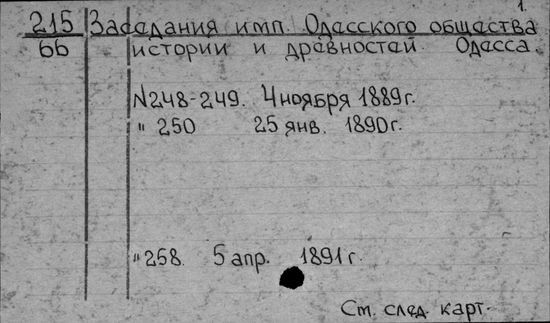 1.
215 Заседания имп. Одесского общества
66 истории и древностей. Одесса.
N248-249. 4 ноября 1889г.
" 250 25 янв. 1890г.
" 258. 5 апр. 1891г.
См. след. карт.